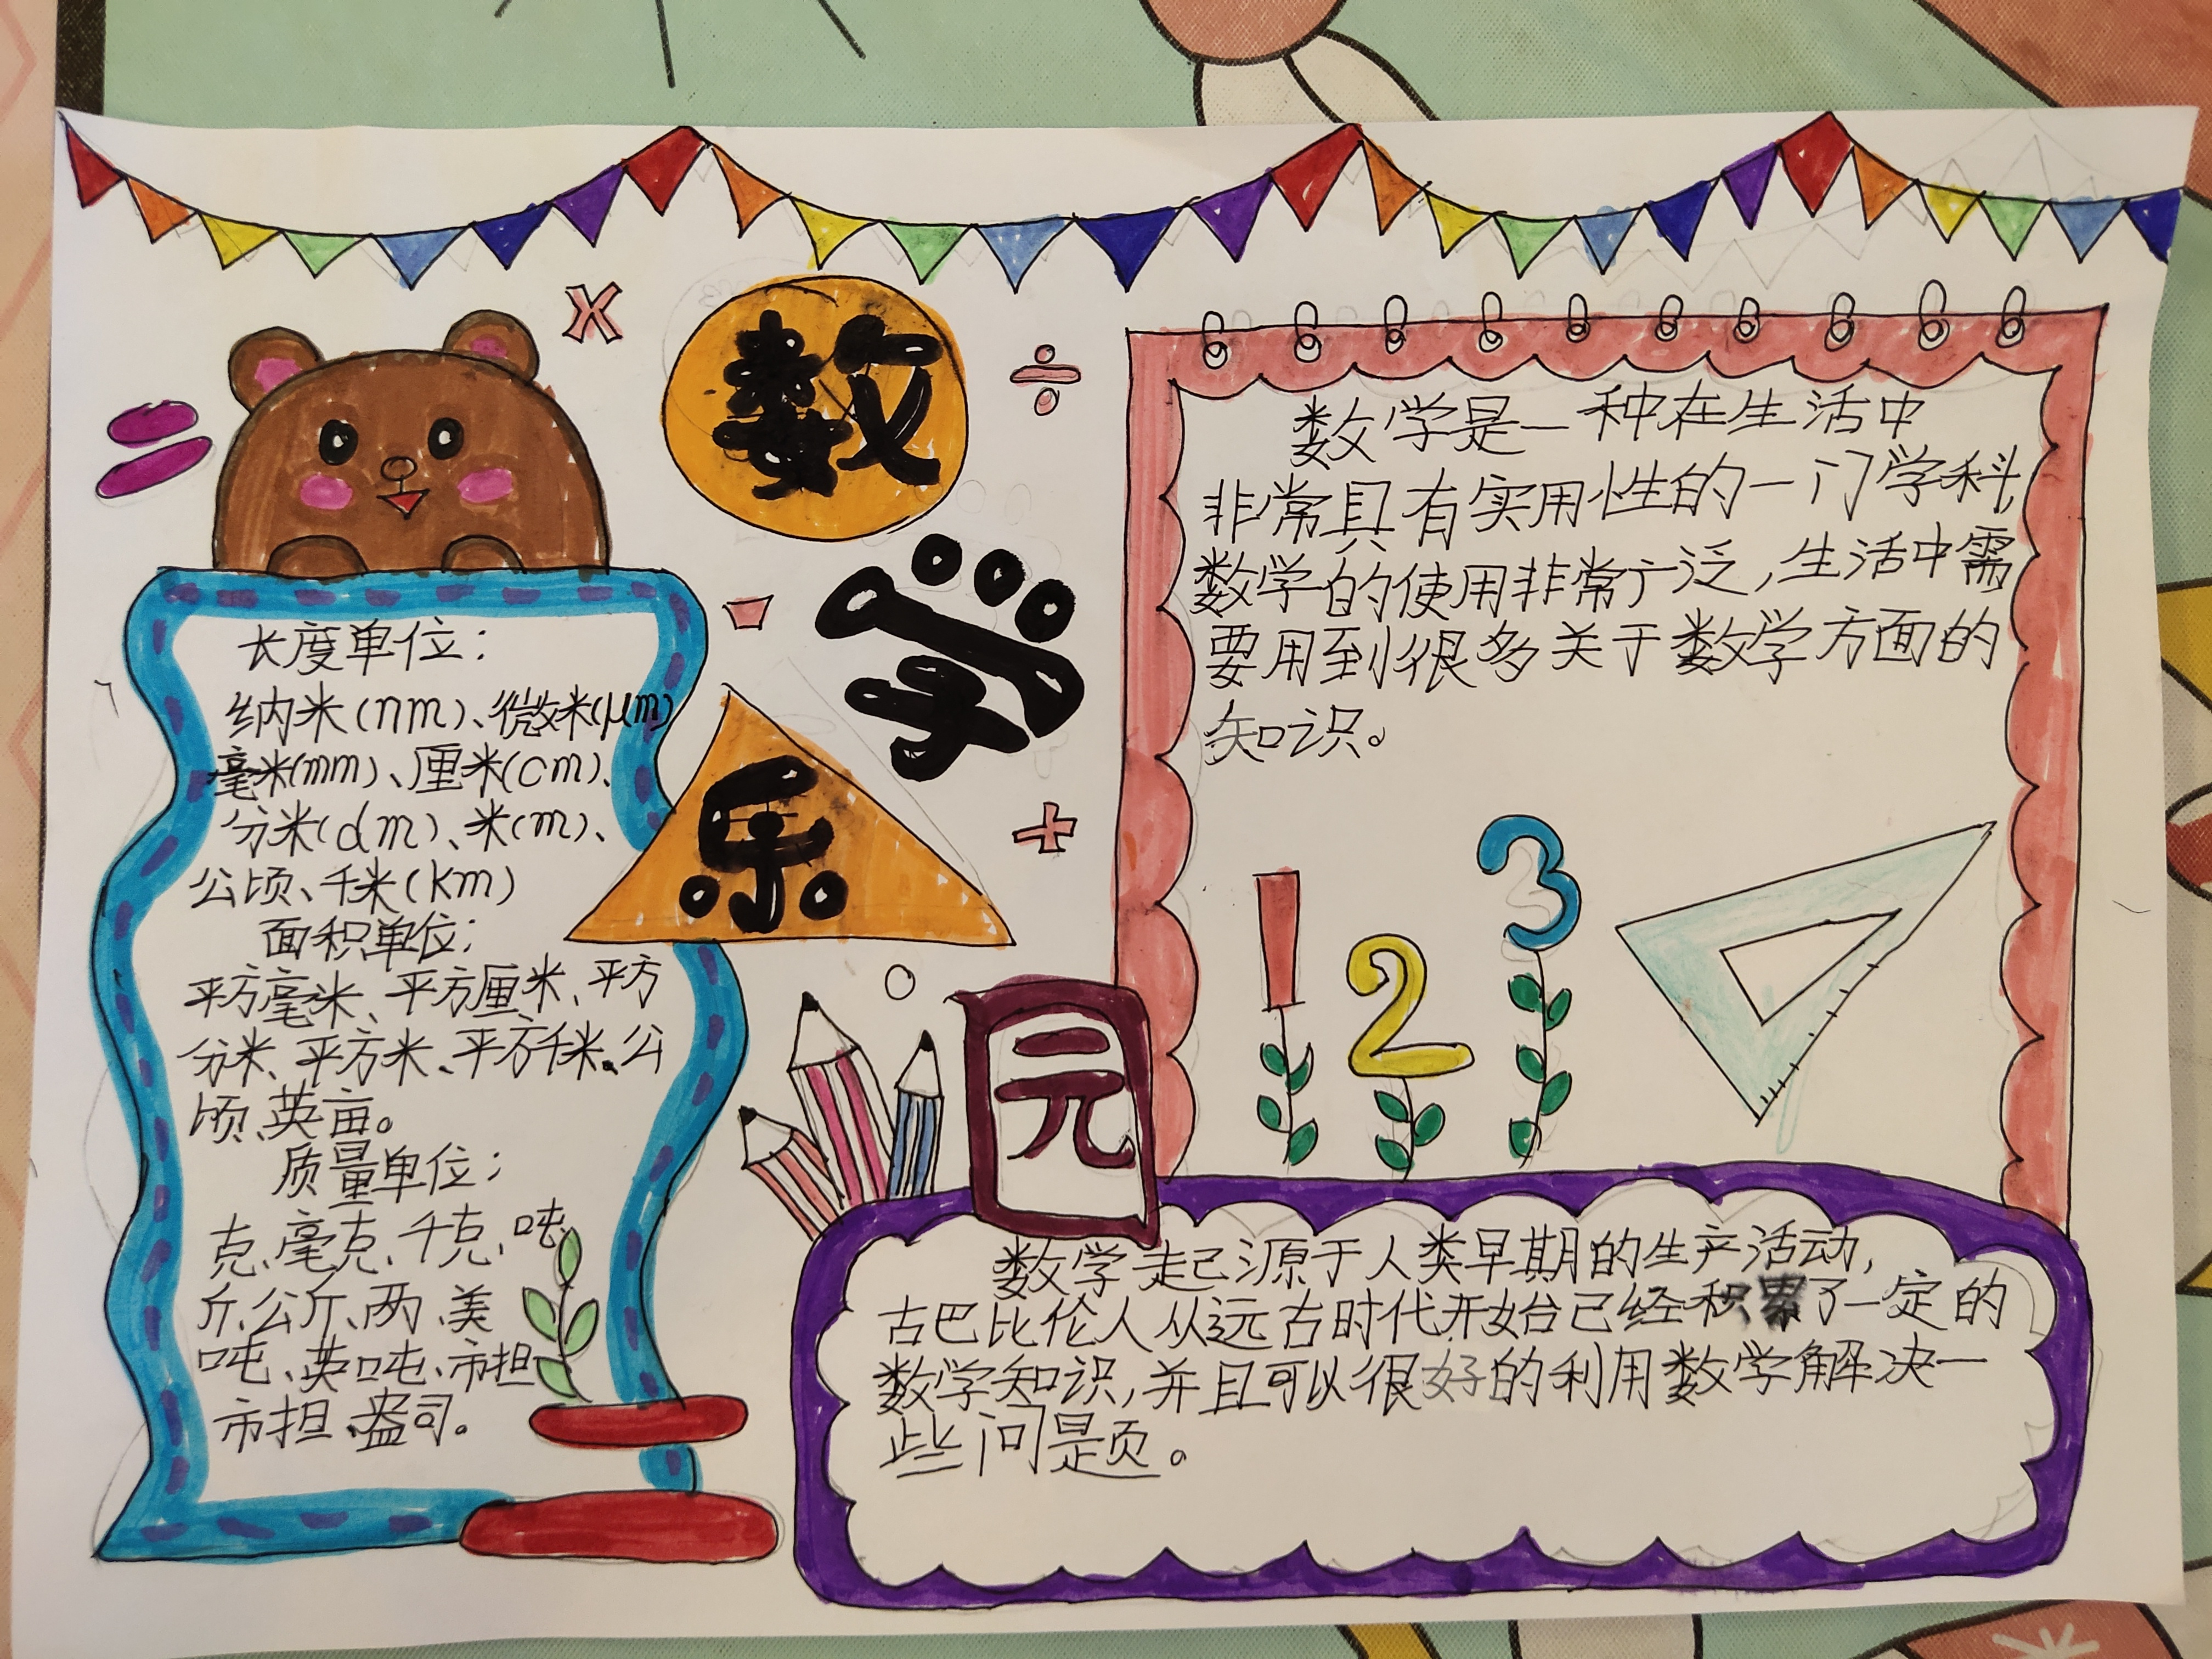 数
学
乐
园
× ÷ = - +
长度单位：
纳米(nm)、微米(μm)
毫米(mm)、厘米(cm)、
分米(dm)、米(m)、
公顷、千米(km)
面积单位；
平方毫米、平方厘米、平方
分米、平方米、平方千米、公
顷、英亩。
质量单位；
克、毫克、千克、吨、
斤、公斤、两、美
吨、英吨、市担
市担、盎司。
数学是一种在生活中
非常具有实用性的一门学科,
数学的使用非常广泛,生活中需
要用到很多关于数学方面的
知识。
1 2 3
数学起源于人类早期的生产活动,
古巴比伦人从远古时代开始已经积累了一定的
数学知识,并且可以很好的利用数学解决一
些问题。